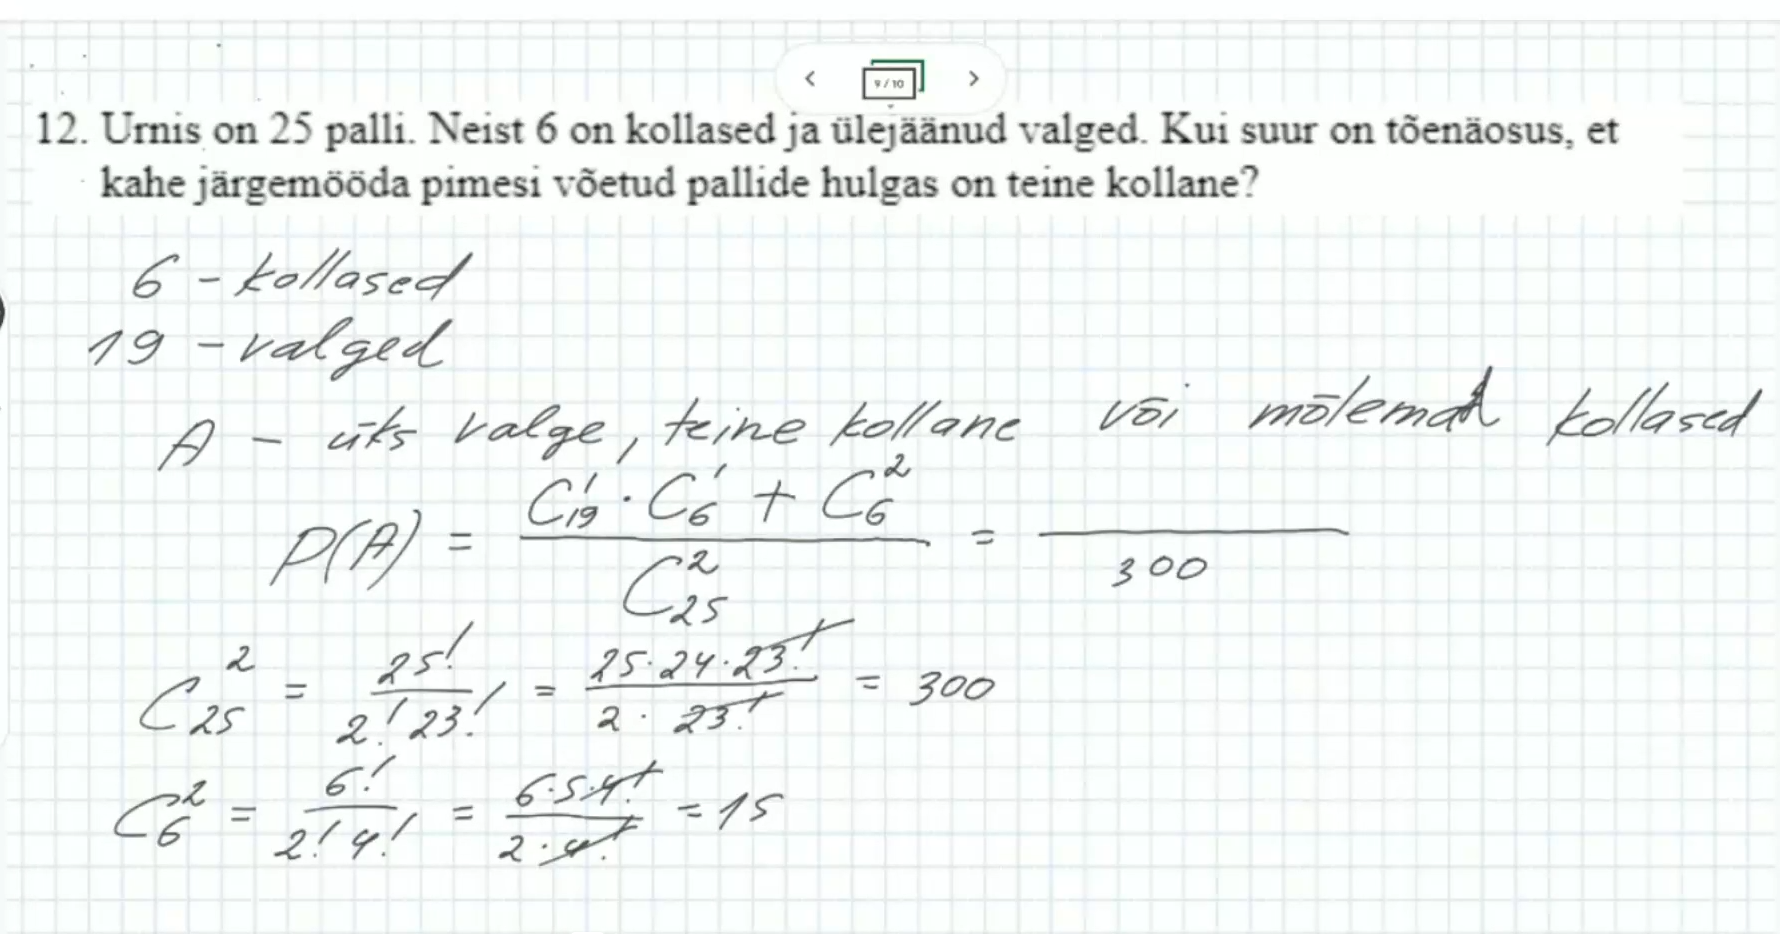 9 / 10
12. Urnis on 25 palli. Neist 6 on kollased ja ülejäänud valged. Kui suur on tõenäosus, et
kahe järgemööda pimesi võetud pallide hulgas on teine kollane?
6 - kollased
19 - valged
A - üks valge, teine kollane või mõlemad kollased
P(A) = (C₁₉¹ · C₆¹ + C₆²) / C₂₅² = / 300
C₂₅² = 25! / 2! 23! = 25·24·23! / 2 · 23! = 300
C₆² = 6! / 2! 4! = 6·5·4! / 2·4! = 15